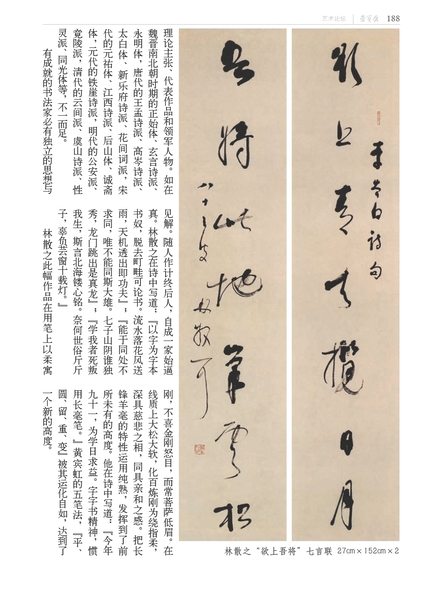 188
理论主张、代表作品和领军人物。如在
魏晋南北朝时期的正始体、玄言诗派、
永明体，唐代的王孟诗派、高岑诗派、
太白体、新乐府诗派、花间词派，宋
代的元祐体、江西诗派、后山体、诚斋
体，元代的铁崖诗派，明代的公安派、
竟陵派，清代的云间派、虞山诗派、性
灵派、同光体等，不一而足。
有成就的书法家必有独立的思想与
见解。随人作计终后人，自成一家始逼
真。林散之在诗中写道：『以字为字本
书奴，脱去町畦可论书。流水落花风送
雨，天机透出即功夫』；『能于同处不
求同，唯不能同斯大雄。七子山阴谁独
秀，龙门跳出是真龙』；『学我者死叛
我生，斯言北海镂心铭。奈何世俗斤斤
子，辜负芸窗十载灯。』
林散之此幅作品在用笔上以柔寓
刚，不喜金刚怒目，而常菩萨低眉。在
线质上大松大软，化百炼刚为绕指柔，
深具慈悲之相，同具亲和之感。把长
锋羊毫的特性运用纯熟，发挥到了前
所未有的高度。他在诗中写道：『今年
九十一，为学日求益。字字书精神，惯
用长毫笔。』黄宾虹的五笔法，『平、
圆、留、重、变』被其运化自如，达到了
一个新的高度。
李太白诗句
欲上青天揽日月
吾将此地巢云松
林散耳
林散之 “欲上吾将” 七言联 27cm×152cm×2